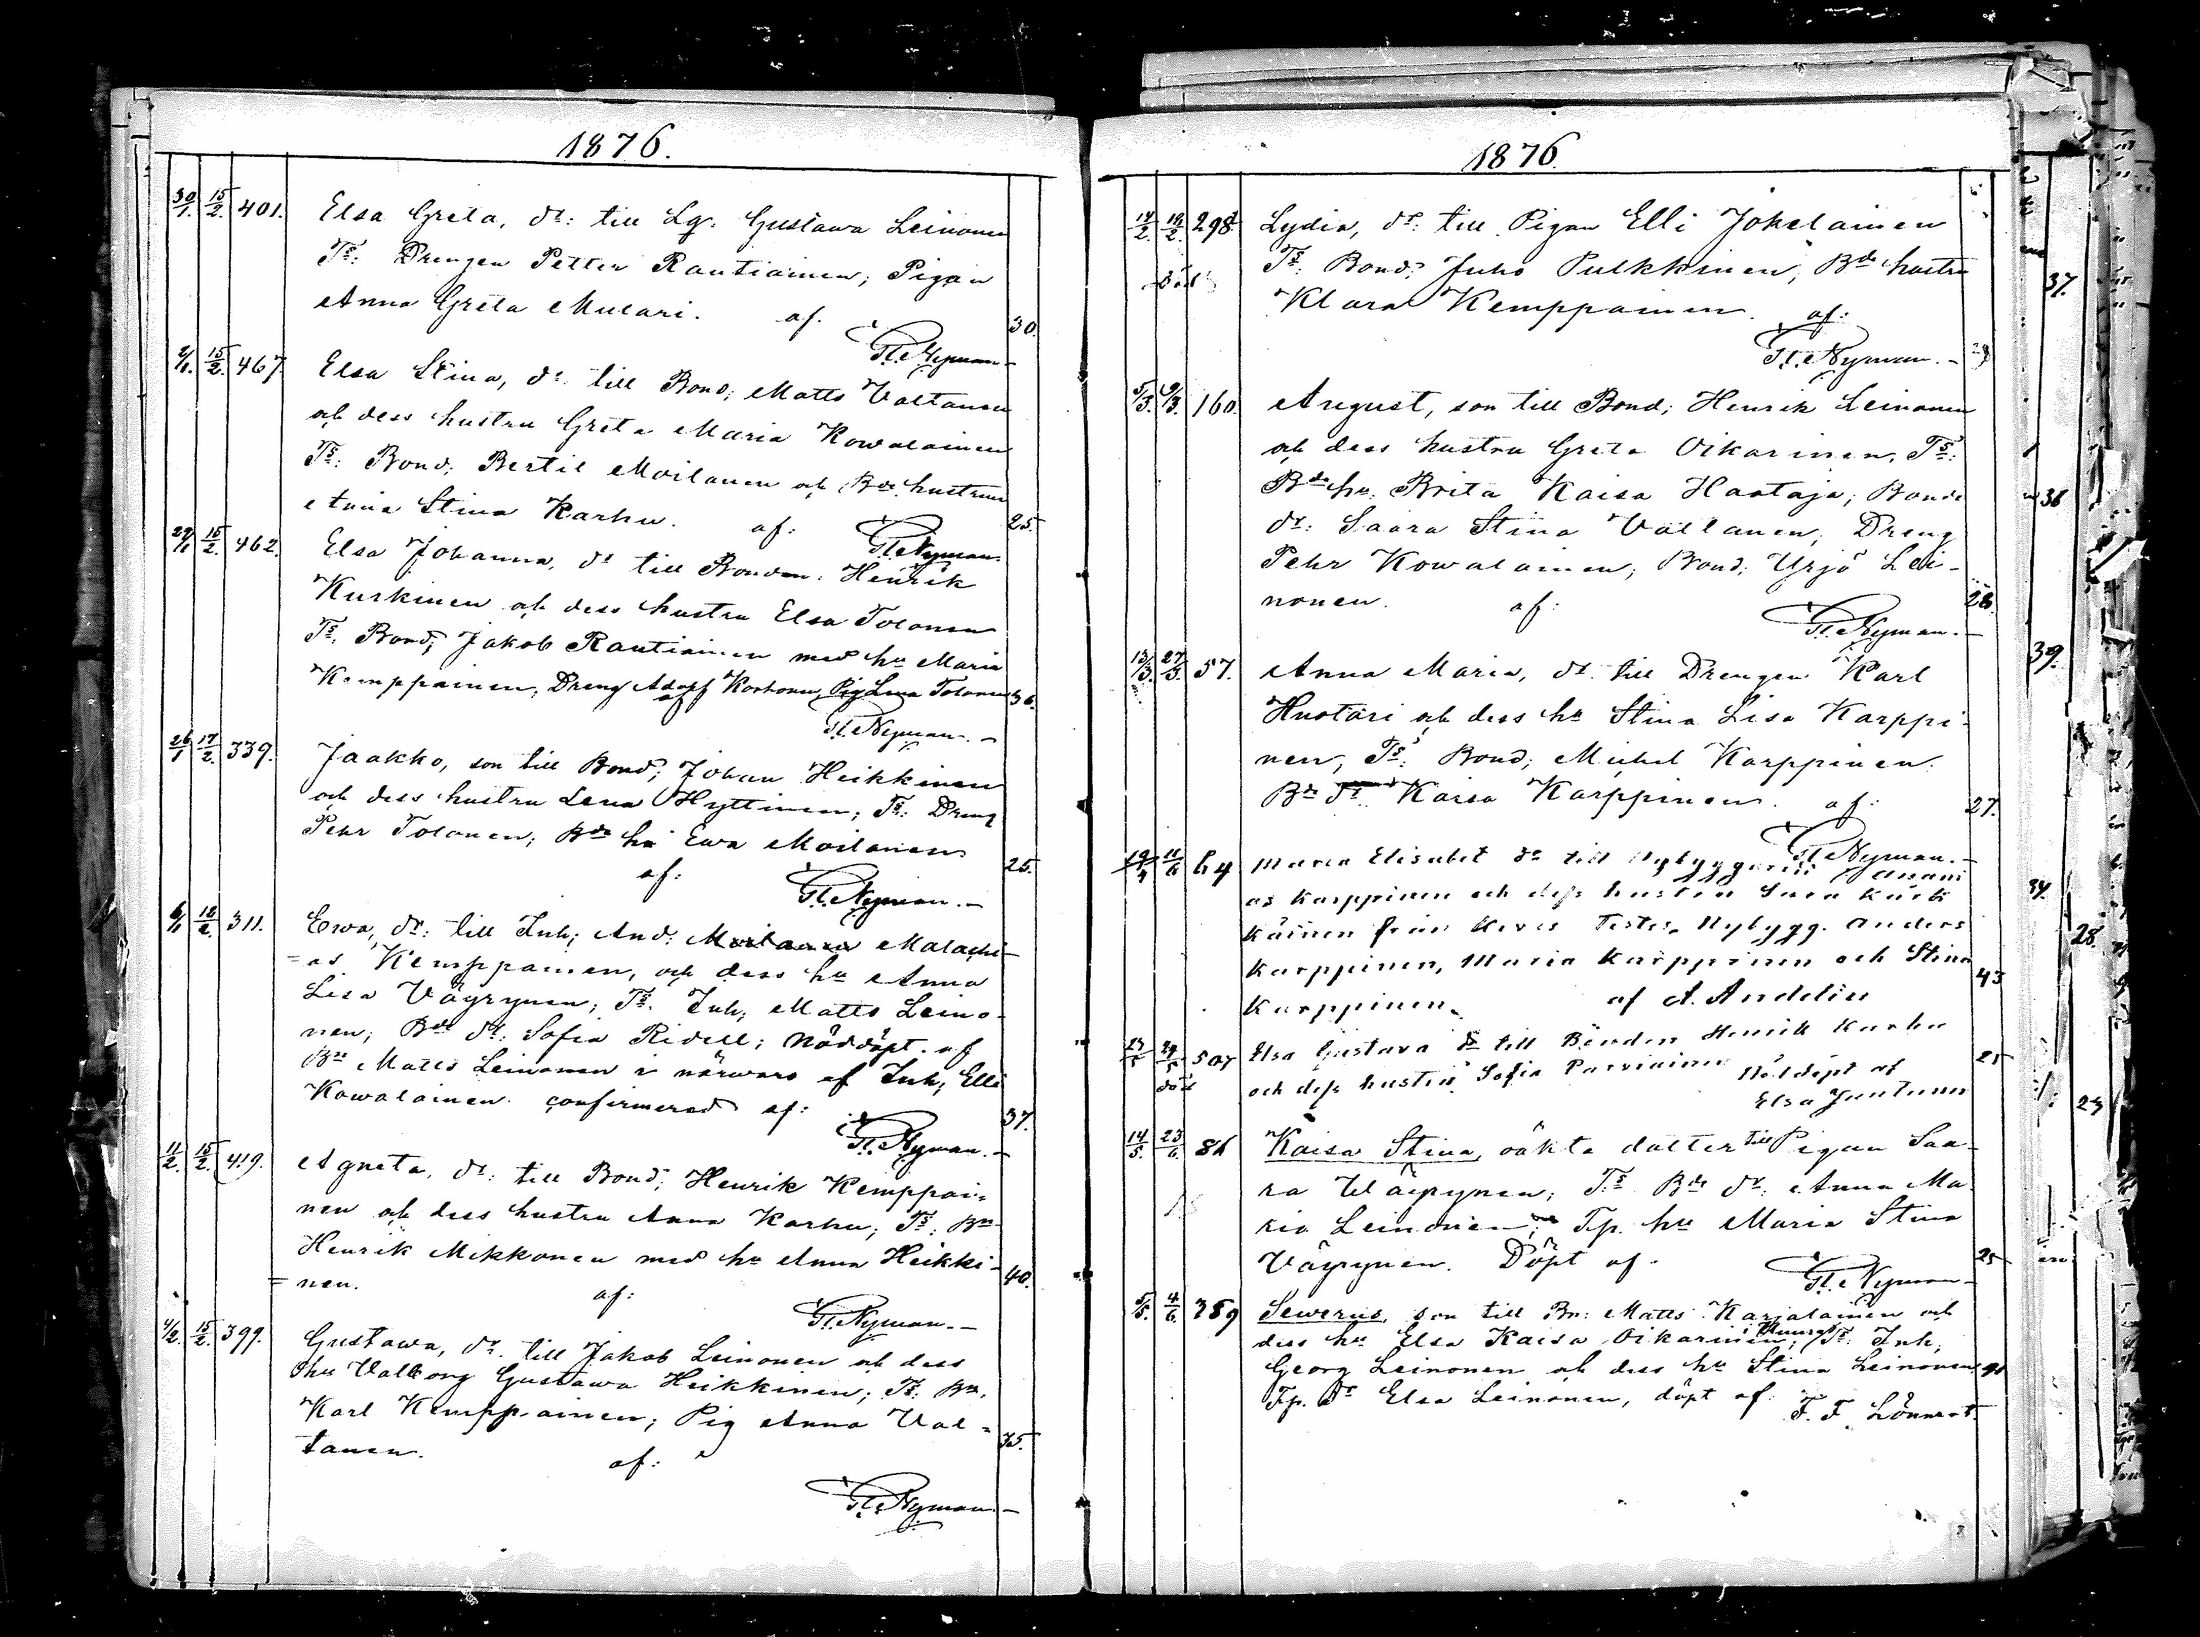 1876.
30/1. 15/2. 401. Elsa Greta, dr: till Lg: Gustawa Leinonen
Ts: Drengen Petter Rautiainen; Pigan
Anna Greta Mulari. af. 30.
Nyman
2/1. 15/2. 467 Elsa Stina, dr: till Bond; Matts Valtanen
och dess hustru Greta Maria Kowalainen
Ts: Bond; Bertil Moilanen och Bde hustrun
Anna Stina Karhu. af: 25.
Nyman
29/1 15/2. 462. Elsa Johanna, dr till Bonden: Henrik
Kurkinen och dess hustru Elsa Tolonen
Ts: Bond; Jakob Rautiainen med hu Maria
Kemppainen; Dreng Adolf Korhonen, Pig Lena Tolonen 36.
af
Nyman.
26/1 17/2. 339. Jaakko, son till Bond; Johan Heikkinen
och dess hustru Lena Hyttinen; Ts: Dreng
Pehr Tolonen; Bde hu Ewa Moilanen
af: 25.
Nyman.
6/1 18/2. 311. Ewa, dr: till Inh; And: Malachi-
=as Kemppainen, och dess hu Anna
Lisa Väyrynen; Ts. Inh; Matts Leino-
nen; Bde dr: Sofia Ridell; Nöddöpt. af
Bn Matts Leinonen i närwaro af Inh; Elli
Kowalainen confirmerad af: 37.
Nyman.
11/2. 15/2. 419. Agneta, dr: till Bond; Henrik Kemppai-
nen och dess hustru Anna Karhu; Ts: Bn
Henrik Mikkonen med hu Anna Heikki-
=nen. af: 40.
Nyman.
4/2. 15/2. 399. Gustawa, dr. till Jakob Leinonen och dess
hu Valborg Gustawa Heikkinen; Ts: Bn.
Karl Kemppainen; Pig Anna Val-
tanen. af: 35.
Nyman
1876.
14/2. 19/2. 298. Lydia, dr: till Pigan Elli Jokelainen
Ts: Bond; Juho Pulkkinen; Bde hustru
Klara Kemppainen. af:
Nyman. 29
5/3. 9/3. 160. August, son till Bond; Henrik Leinonen
och dess hustru Greta Oikarinen, Ts:
Bde hu. Brita Kaisa Haataja; Bonde
dr: Saara Stina Valtanen; Dreng
Pehr Kowalainen; Bond; Yrjö Lei-
nonen. af: 26.
Nyman.
13/3. 27/3. 57. Anna Maria, dr till Drengen Karl
Huotari och dess hu Stina Lisa Karppi-
nen, Ts: Bond; Michel Karppinen.
Bn dr. Kaisa Karppinen. af: 27.
Nyman.
64 Maria Elisabet dr till Nybyggaren Anani
as Karppinen och dess hustru
från Testes Nybygg. Anders
Karppinen, Maria Karppinen och Stina
Karppinen. af A. Andelin 43
507 Elsa Gustava dr till Bonden Henrik Karhu
död och dess hustru Sofia Parviainen Nöddöpt af 25
Elsa Juntunen
14/5. 23/6. 86 Kaisa Stina, oäkta dotter till Pigan Saa-
ra Wäyrynen; Ts. Bde dr: Anna Ma-
ria Leinonen; Tp. hu Maria Stina
Väyrynen. Döpt af. 25
Nyman
5/5. 4/6. 359 Sewerus, son till Bn: Matts Karjalainen och
dess hu Elsa Kaisa Oikarinen; Ts: Inh;
Georg Leinonen och dess hu Stina Leinonen
Tp. dr Elsa Leinonen, döpt af:
F. F. Lönnrot.
37.
38
39.
34.
28.
23